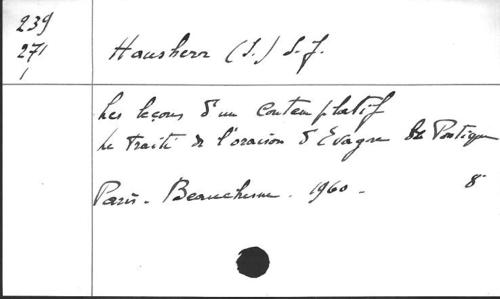 239
271
1
Hausherr (I.) S.J.
Les leçons d'un Contemplatif
Le Traité de l'oraison d'Evagre le Pontique
Paris - Beauchesne - 1960 - 8°